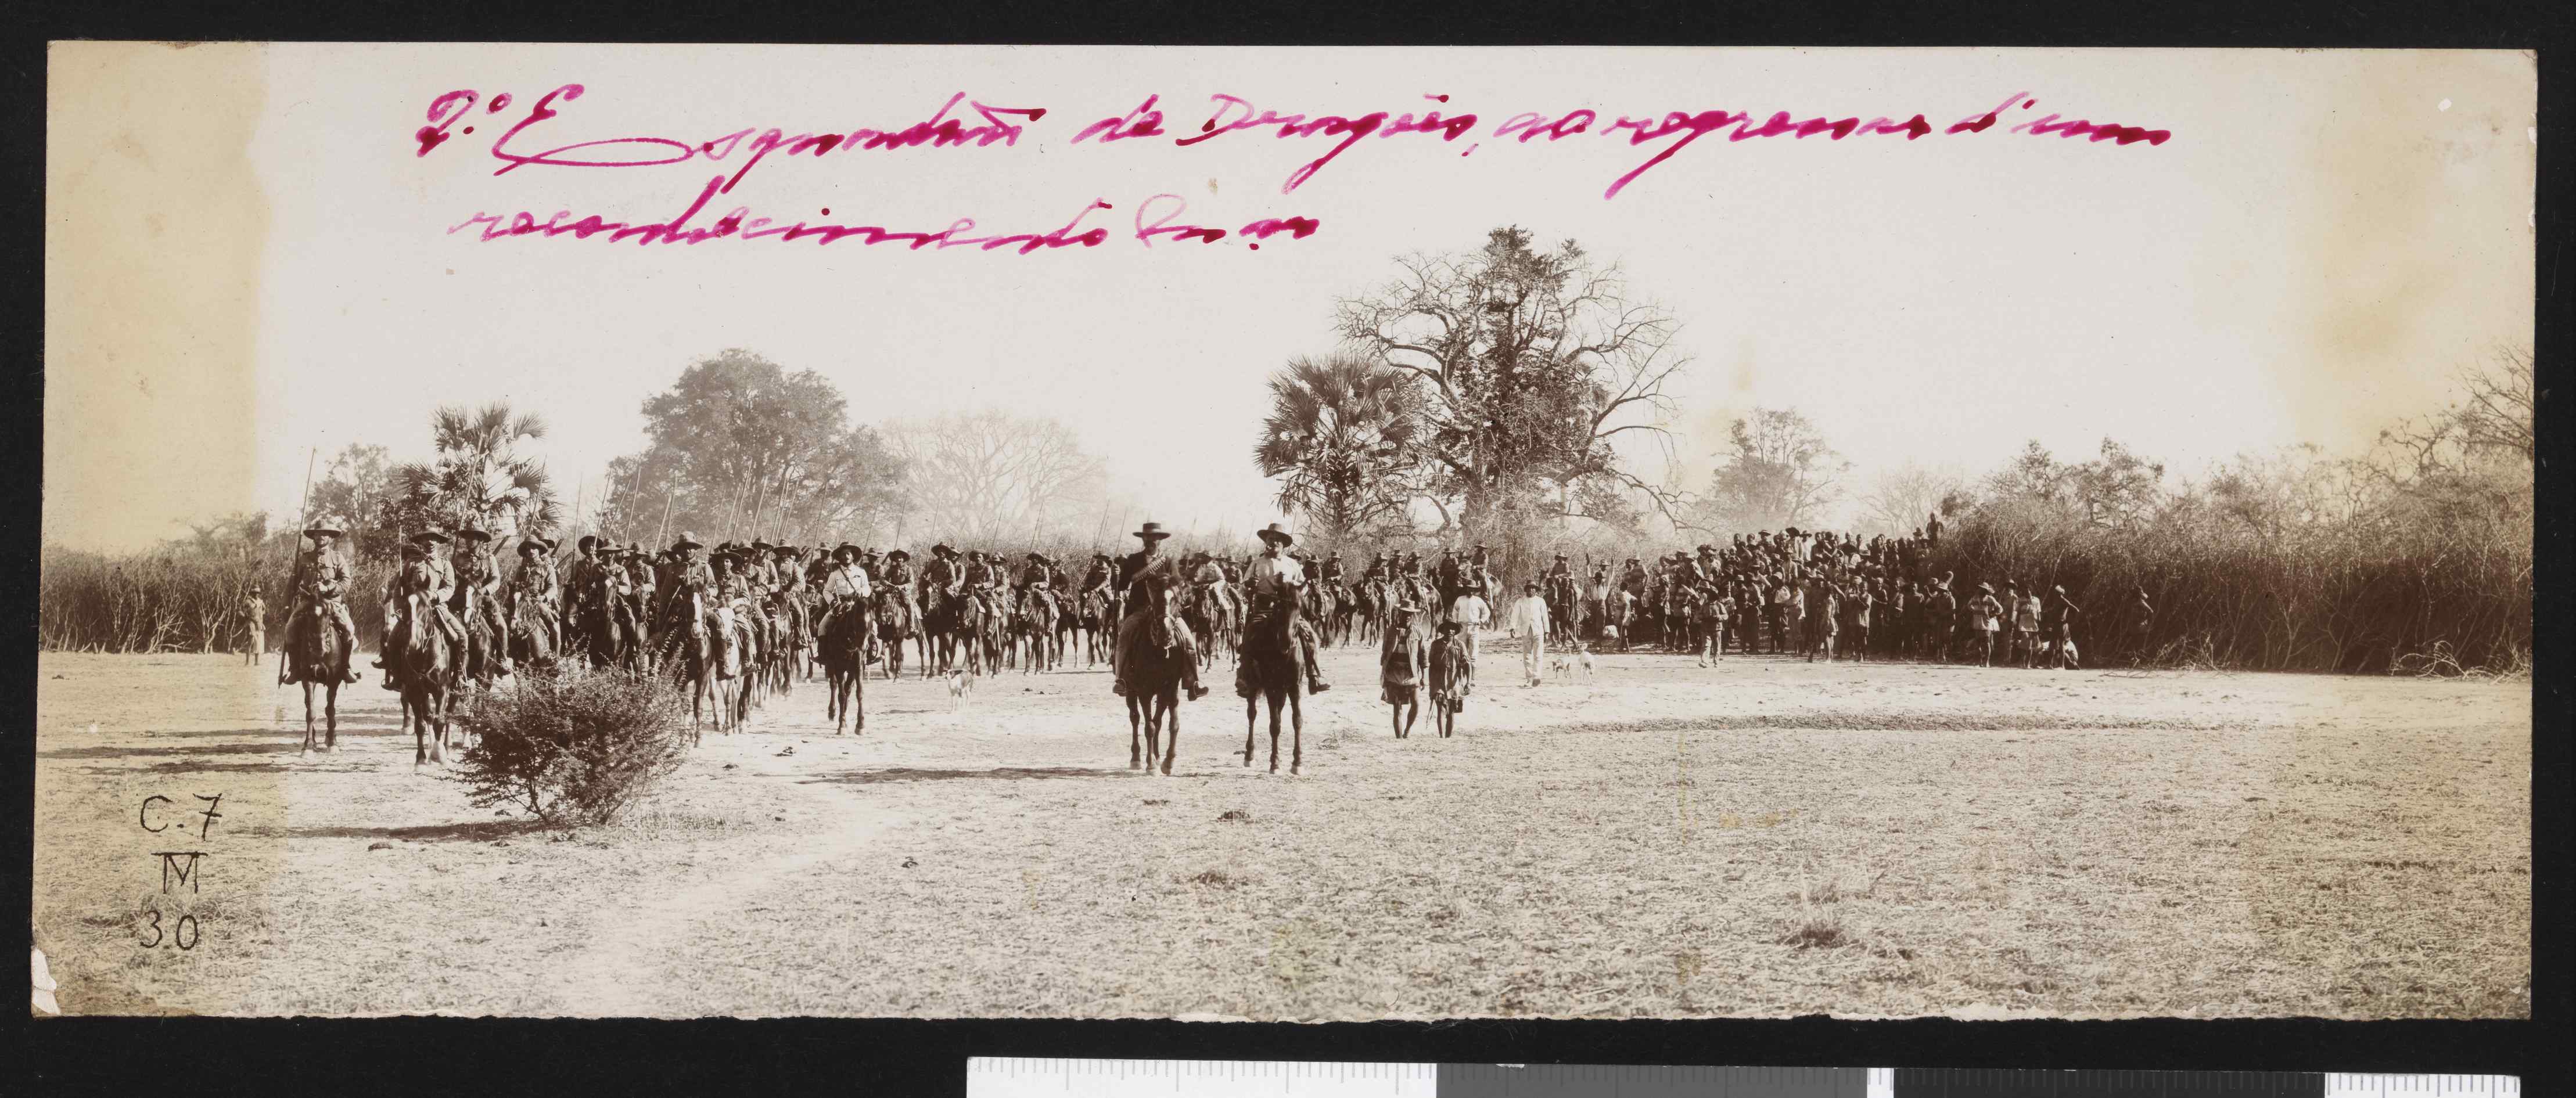 2.º Esquadrão de Dragões, ao regressar d'um
reconhecimento
C.7
M
30